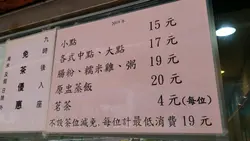 2014年
小點 15 元
各式中點、大點 17 元
腸粉、糯米雞、粥 19 元
原盅蒸飯 20 元
茗茶 4 元(每位)
不設茶位減免,每位計最低消費 19 元
九時後入座
免茶優惠